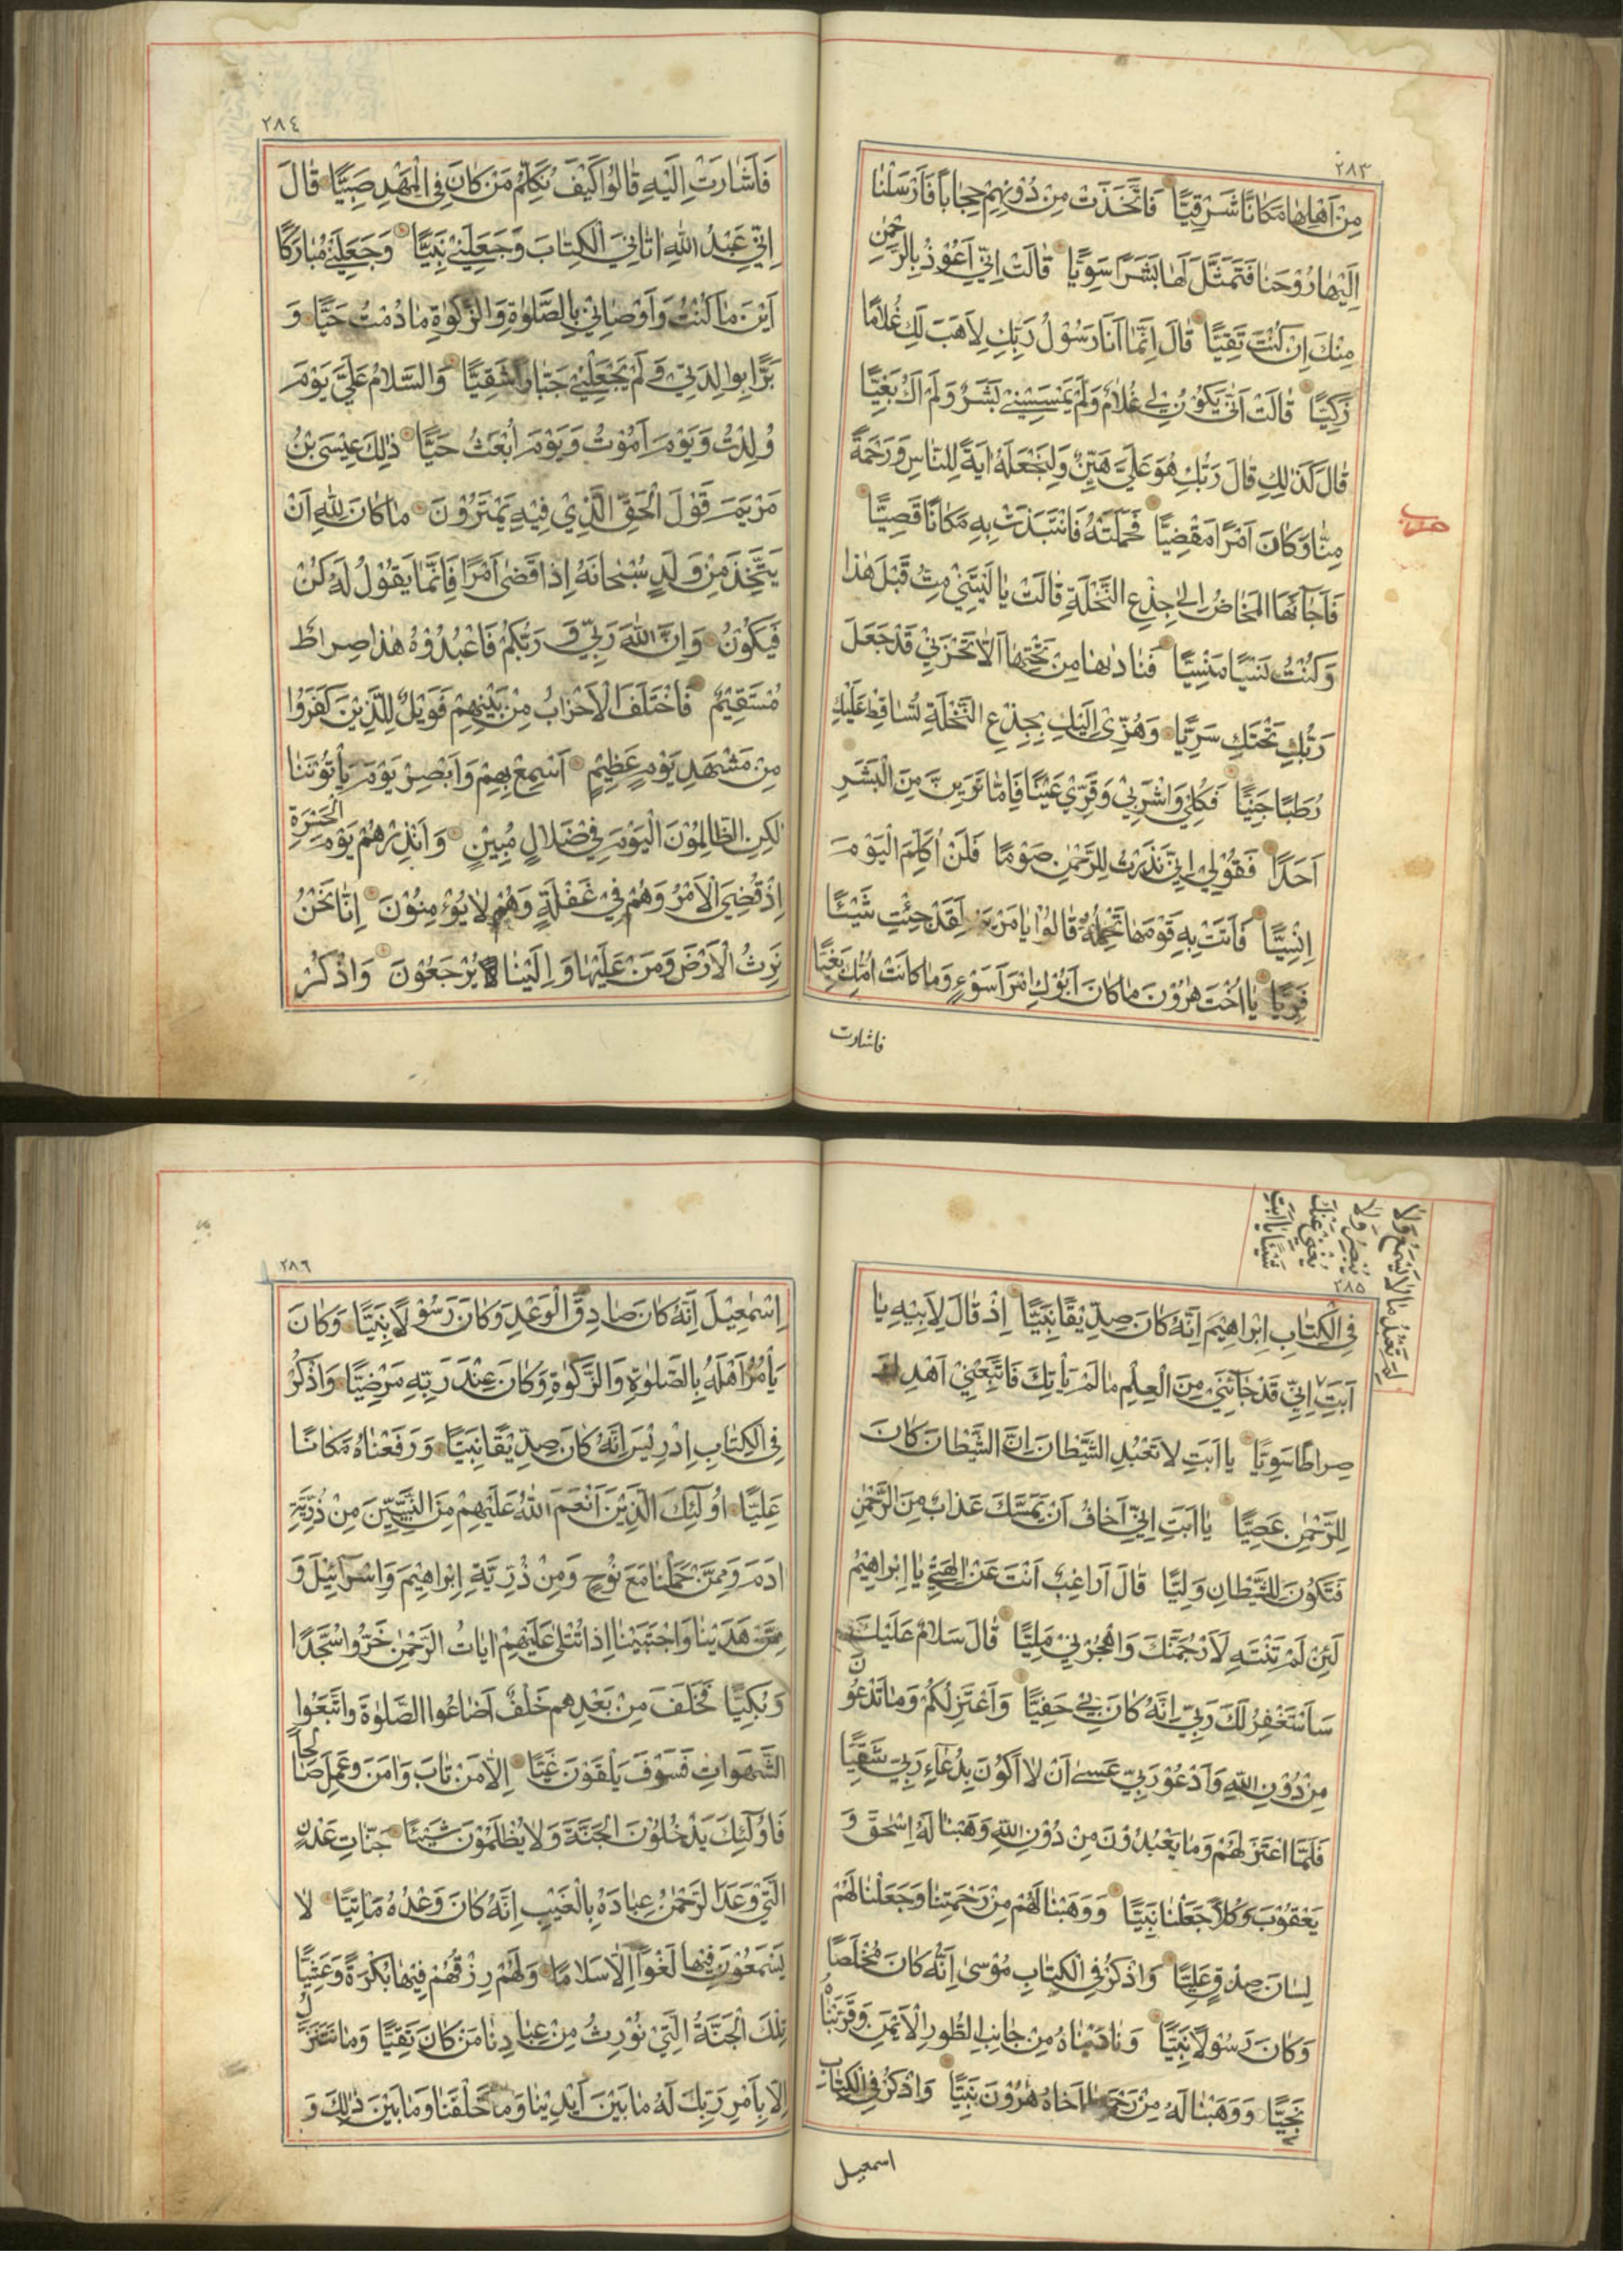 ٢٨٣
مِنْ اَهْلِهٰا مَكٰانًا شَرْقِيًّا فَاتَّخَذَتْ مِنْ دُوْنِهِمْ حِجٰاباً فَاَرْسَلْنٰا
اِلَيْهٰا رُوْحَنٰا فَتَمَثَّلَ لَهٰا بَشَرًا سَوِيًّا قٰالَتْ اِنِّيْ اَعُوْذُ بِالرَّحْمٰنِ
مِنْكَ اِنْ كُنْتَ تَقِيًّا قٰالَ اِنَّمٰا اَنَا رَسُوْلُ رَبِّكِ لِاَهَبَ لَكِ غُلٰامًا
زَكِيًّا قٰالَتْ اَنّٰى يَكُوْنُ لِيْ غُلٰامٌ وَلَمْ يَمْسَسْنِيْ بَشَرٌ وَلَمْ اَكُ بَغِيًّا
قٰالَ كَذٰلِكِ قٰالَ رَبُّكِ هُوَ عَلَيَّ هَيِّنٌ وَلِنَجْعَلَهُ اٰيَةً لِلنّٰاسِ وَرَحْمَةً
مِنّٰا وَكٰانَ اَمْرًا مَقْضِيًّا فَحَمَلَتْهُ فَانْتَبَذَتْ بِهِ مَكٰانًا قَصِيًّا
فَاَجٰاءَهَا الْمَخٰاضُ اِلٰى جِذْعِ النَّخْلَةِ قٰالَتْ يٰا لَيْتَنِيْ مِتُّ قَبْلَ هٰذٰا
وَكُنْتُ نَسْيًا مَنْسِيًّا فَنٰادٰىهٰا مِنْ تَحْتِهٰا اَلّٰا تَحْزَنِيْ قَدْ جَعَلَ
رَبُّكِ تَحْتَكِ سَرِيًّا وَهُزِّيْ اِلَيْكِ بِجِذْعِ النَّخْلَةِ تُسٰاقِطْ عَلَيْكِ
رُطَبًا جَنِيًّا فَكُلِيْ وَاشْرَبِيْ وَقَرِّيْ عَيْنًا فَاِمّٰا تَرَيِنَّ مِنَ الْبَشَرِ
اَحَدًا فَقُوْلِيْ اِنِّيْ نَذَرْتُ لِلرَّحْمٰنِ صَوْمًا فَلَنْ اُكَلِّمَ الْيَوْمَ
اِنْسِيًّا فَاَتَتْ بِهِ قَوْمَهٰا تَحْمِلُهُ قٰالُوْا يٰا مَرْيَمُ لَقَدْ جِئْتِ شَيْئًا
فَرِيًّا يٰا اُخْتَ هٰرُوْنَ مٰا كٰانَ اَبُوْكِ امْرَاَ سَوْءٍ وَمٰا كٰانَتْ اُمُّكِ بَغِيًّا
فاشارت
حزب
٢٨٤
فَاَشٰارَتْ اِلَيْهِ قٰالُوْا كَيْفَ نُكَلِّمُ مَنْ كٰانَ فِي الْمَهْدِ صَبِيًّا قٰالَ
اِنِّيْ عَبْدُ اللّٰهِ اٰتٰانِيَ الْكِتٰابَ وَجَعَلَنِيْ نَبِيًّا وَجَعَلَنِيْ مُبٰارَكًا
اَيْنَ مٰا كُنْتُ وَاَوْصٰانِيْ بِالصَّلٰوةِ وَالزَّكٰوةِ مٰا دُمْتُ حَيًّا وَ
بَرًّا بِوٰالِدَتِيْ وَلَمْ يَجْعَلْنِيْ جَبّٰارًا شَقِيًّا وَالسَّلٰامُ عَلَيَّ يَوْمَ
وُلِدْتُ وَيَوْمَ اَمُوْتُ وَيَوْمَ اُبْعَثُ حَيًّا ذٰلِكَ عِيْسَى بْنُ
مَرْيَمَ قَوْلَ الْحَقِّ الَّذِيْ فِيْهِ يَمْتَرُوْنَ مٰا كٰانَ لِلّٰهِ اَنْ
يَتَّخِذَ مِنْ وَلَدٍ سُبْحٰانَهُ اِذٰا قَضٰى اَمْرًا فَاِنَّمٰا يَقُوْلُ لَهُ كُنْ
فَيَكُوْنُ وَاِنَّ اللّٰهَ رَبِّيْ وَ رَبُّكُمْ فَاعْبُدُوْهُ هٰذٰا صِرٰاطٌ
مُسْتَقِيْمٌ فَاخْتَلَفَ الْاَحْزٰابُ مِنْ بَيْنِهِمْ فَوَيْلٌ لِلَّذِيْنَ كَفَرُوْا
مِنْ مَشْهَدِ يَوْمٍ عَظِيْمٍ اَسْمِعْ بِهِمْ وَاَبْصِرْ يَوْمَ يَأْتُوْنَنٰا
لٰكِنِ الظّٰالِمُوْنَ الْيَوْمَ فِيْ ضَلٰالٍ مُبِيْنٍ وَاَنْذِرْهُمْ يَوْمَ الْحَسْرَةِ
اِذْ قُضِيَ الْاَمْرُ وَهُمْ فِيْ غَفْلَةٍ وَهُمْ لٰا يُؤْمِنُوْنَ اِنّٰا نَحْنُ
نَرِثُ الْاَرْضَ وَمَنْ عَلَيْهٰا وَ اِلَيْنٰا يُرْجَعُوْنَ وَاذْكُرْ
لِمَ تَعْبُدُ مٰا لٰا يَسْمَعُ وَلٰا
يُبْصِرُ وَلٰا
يُغْنِيْ عَنْكَ
شَيْئًا يٰا اَبَتِ
٢٨٥
فِي الْكِتٰابِ اِبْرٰاهِيْمَ اِنَّهُ كٰانَ صِدِّيْقًا نَبِيًّا اِذْ قٰالَ لِاَبِيْهِ يٰا
اَبَتِ اِنِّيْ قَدْ جٰاءَنِيْ مِنَ الْعِلْمِ مٰا لَمْ يَأْتِكَ فَاتَّبِعْنِيْ اَهْدِكَ
صِرٰاطًا سَوِيًّا يٰا اَبَتِ لٰا تَعْبُدِ الشَّيْطٰانَ اِنَّ الشَّيْطٰانَ كٰانَ
لِلرَّحْمٰنِ عَصِيًّا يٰا اَبَتِ اِنِّيْ اَخٰافُ اَنْ يَمَسَّكَ عَذٰابٌ مِنَ الرَّحْمٰنِ
فَتَكُوْنَ لِلشَّيْطٰانِ وَلِيًّا قٰالَ اَرٰاغِبٌ اَنْتَ عَنْ اٰلِهَتِيْ يٰا اِبْرٰاهِيْمُ
لَئِنْ لَمْ تَنْتَهِ لَاَرْجُمَنَّكَ وَاهْجُرْنِيْ مَلِيًّا قٰالَ سَلٰامٌ عَلَيْكَ
سَاَسْتَغْفِرُ لَكَ رَبِّيْ اِنَّهُ كٰانَ بِيْ حَفِيًّا وَاَعْتَزِلُكُمْ وَمٰا تَدْعُوْنَ
مِنْ دُوْنِ اللّٰهِ وَاَدْعُوْ رَبِّيْ عَسٰى اَنْ لٰا اَكُوْنَ بِدُعٰاءِ رَبِّيْ شَقِيًّا
فَلَمَّا اعْتَزَلَهُمْ وَمٰا يَعْبُدُوْنَ مِنْ دُوْنِ اللّٰهِ وَهَبْنٰا لَهُ اِسْحٰقَ وَ
يَعْقُوْبَ وَكُلًّا جَعَلْنٰا نَبِيًّا وَوَهَبْنٰا لَهُمْ مِنْ رَحْمَتِنٰا وَجَعَلْنٰا لَهُمْ
لِسٰانَ صِدْقٍ عَلِيًّا وَاذْكُرْ فِي الْكِتٰابِ مُوْسٰى اِنَّهُ كٰانَ مُخْلَصًا
وَكٰانَ رَسُوْلًا نَبِيًّا وَنٰادَيْنٰاهُ مِنْ جٰانِبِ الطُّوْرِ الْاَيْمَنِ وَقَرَّبْنٰاهُ
نَجِيًّا وَوَهَبْنٰا لَهُ مِنْ رَحْمَتِنٰا اَخٰاهُ هٰرُوْنَ نَبِيًّا وَاذْكُرْ فِي الْكِتٰابِ
اسمعيل
٢٨٦
اِسْمٰعِيْلَ اِنَّهُ كٰانَ صٰادِقَ الْوَعْدِ وَكٰانَ رَسُوْلًا نَبِيًّا وَكٰانَ
يَأْمُرُ اَهْلَهُ بِالصَّلٰوةِ وَالزَّكٰوةِ وَكٰانَ عِنْدَ رَبِّهِ مَرْضِيًّا وَاذْكُرْ
فِي الْكِتٰابِ اِدْرِيْسَ اِنَّهُ كٰانَ صِدِّيْقًا نَبِيًّا وَ رَفَعْنٰاهُ مَكٰانًا
عَلِيًّا اُولٰئِكَ الَّذِيْنَ اَنْعَمَ اللّٰهُ عَلَيْهِمْ مِنَ النَّبِيِّيْنَ مِنْ ذُرِّيَّةِ
اٰدَمَ وَمِمَّنْ حَمَلْنٰا مَعَ نُوْحٍ وَمِنْ ذُرِّيَّةِ اِبْرٰاهِيْمَ وَاِسْرٰائِيْلَ وَ
مِمَّنْ هَدَيْنٰا وَاجْتَبَيْنٰا اِذٰا تُتْلٰى عَلَيْهِمْ اٰيٰاتُ الرَّحْمٰنِ خَرُّوْا سُجَّدًا
وَبُكِيًّا فَخَلَفَ مِنْ بَعْدِهِمْ خَلْفٌ اَضٰاعُوا الصَّلٰوةَ وَاتَّبَعُوا
الشَّهَوٰاتِ فَسَوْفَ يَلْقَوْنَ غَيًّا اِلّٰا مَنْ تٰابَ وَاٰمَنَ وَعَمِلَ صٰالِحًا
فَاُولٰئِكَ يَدْخُلُوْنَ الْجَنَّةَ وَلٰا يُظْلَمُوْنَ شَيْئًا جَنّٰاتِ عَدْنٍ
الَّتِيْ وَعَدَ الرَّحْمٰنُ عِبٰادَهُ بِالْغَيْبِ اِنَّهُ كٰانَ وَعْدُهُ مَأْتِيًّا لٰا
يَسْمَعُوْنَ فِيْهٰا لَغْوًا اِلّٰا سَلٰامًا وَلَهُمْ رِزْقُهُمْ فِيْهٰا بُكْرَةً وَعَشِيًّا
تِلْكَ الْجَنَّةُ الَّتِيْ نُوْرِثُ مِنْ عِبٰادِنٰا مَنْ كٰانَ تَقِيًّا وَمٰا نَتَنَزَّلُ
اِلّٰا بِاَمْرِ رَبِّكَ لَهُ مٰا بَيْنَ اَيْدِيْنٰا وَمٰا خَلْفَنٰا وَمٰا بَيْنَ ذٰلِكَ وَ